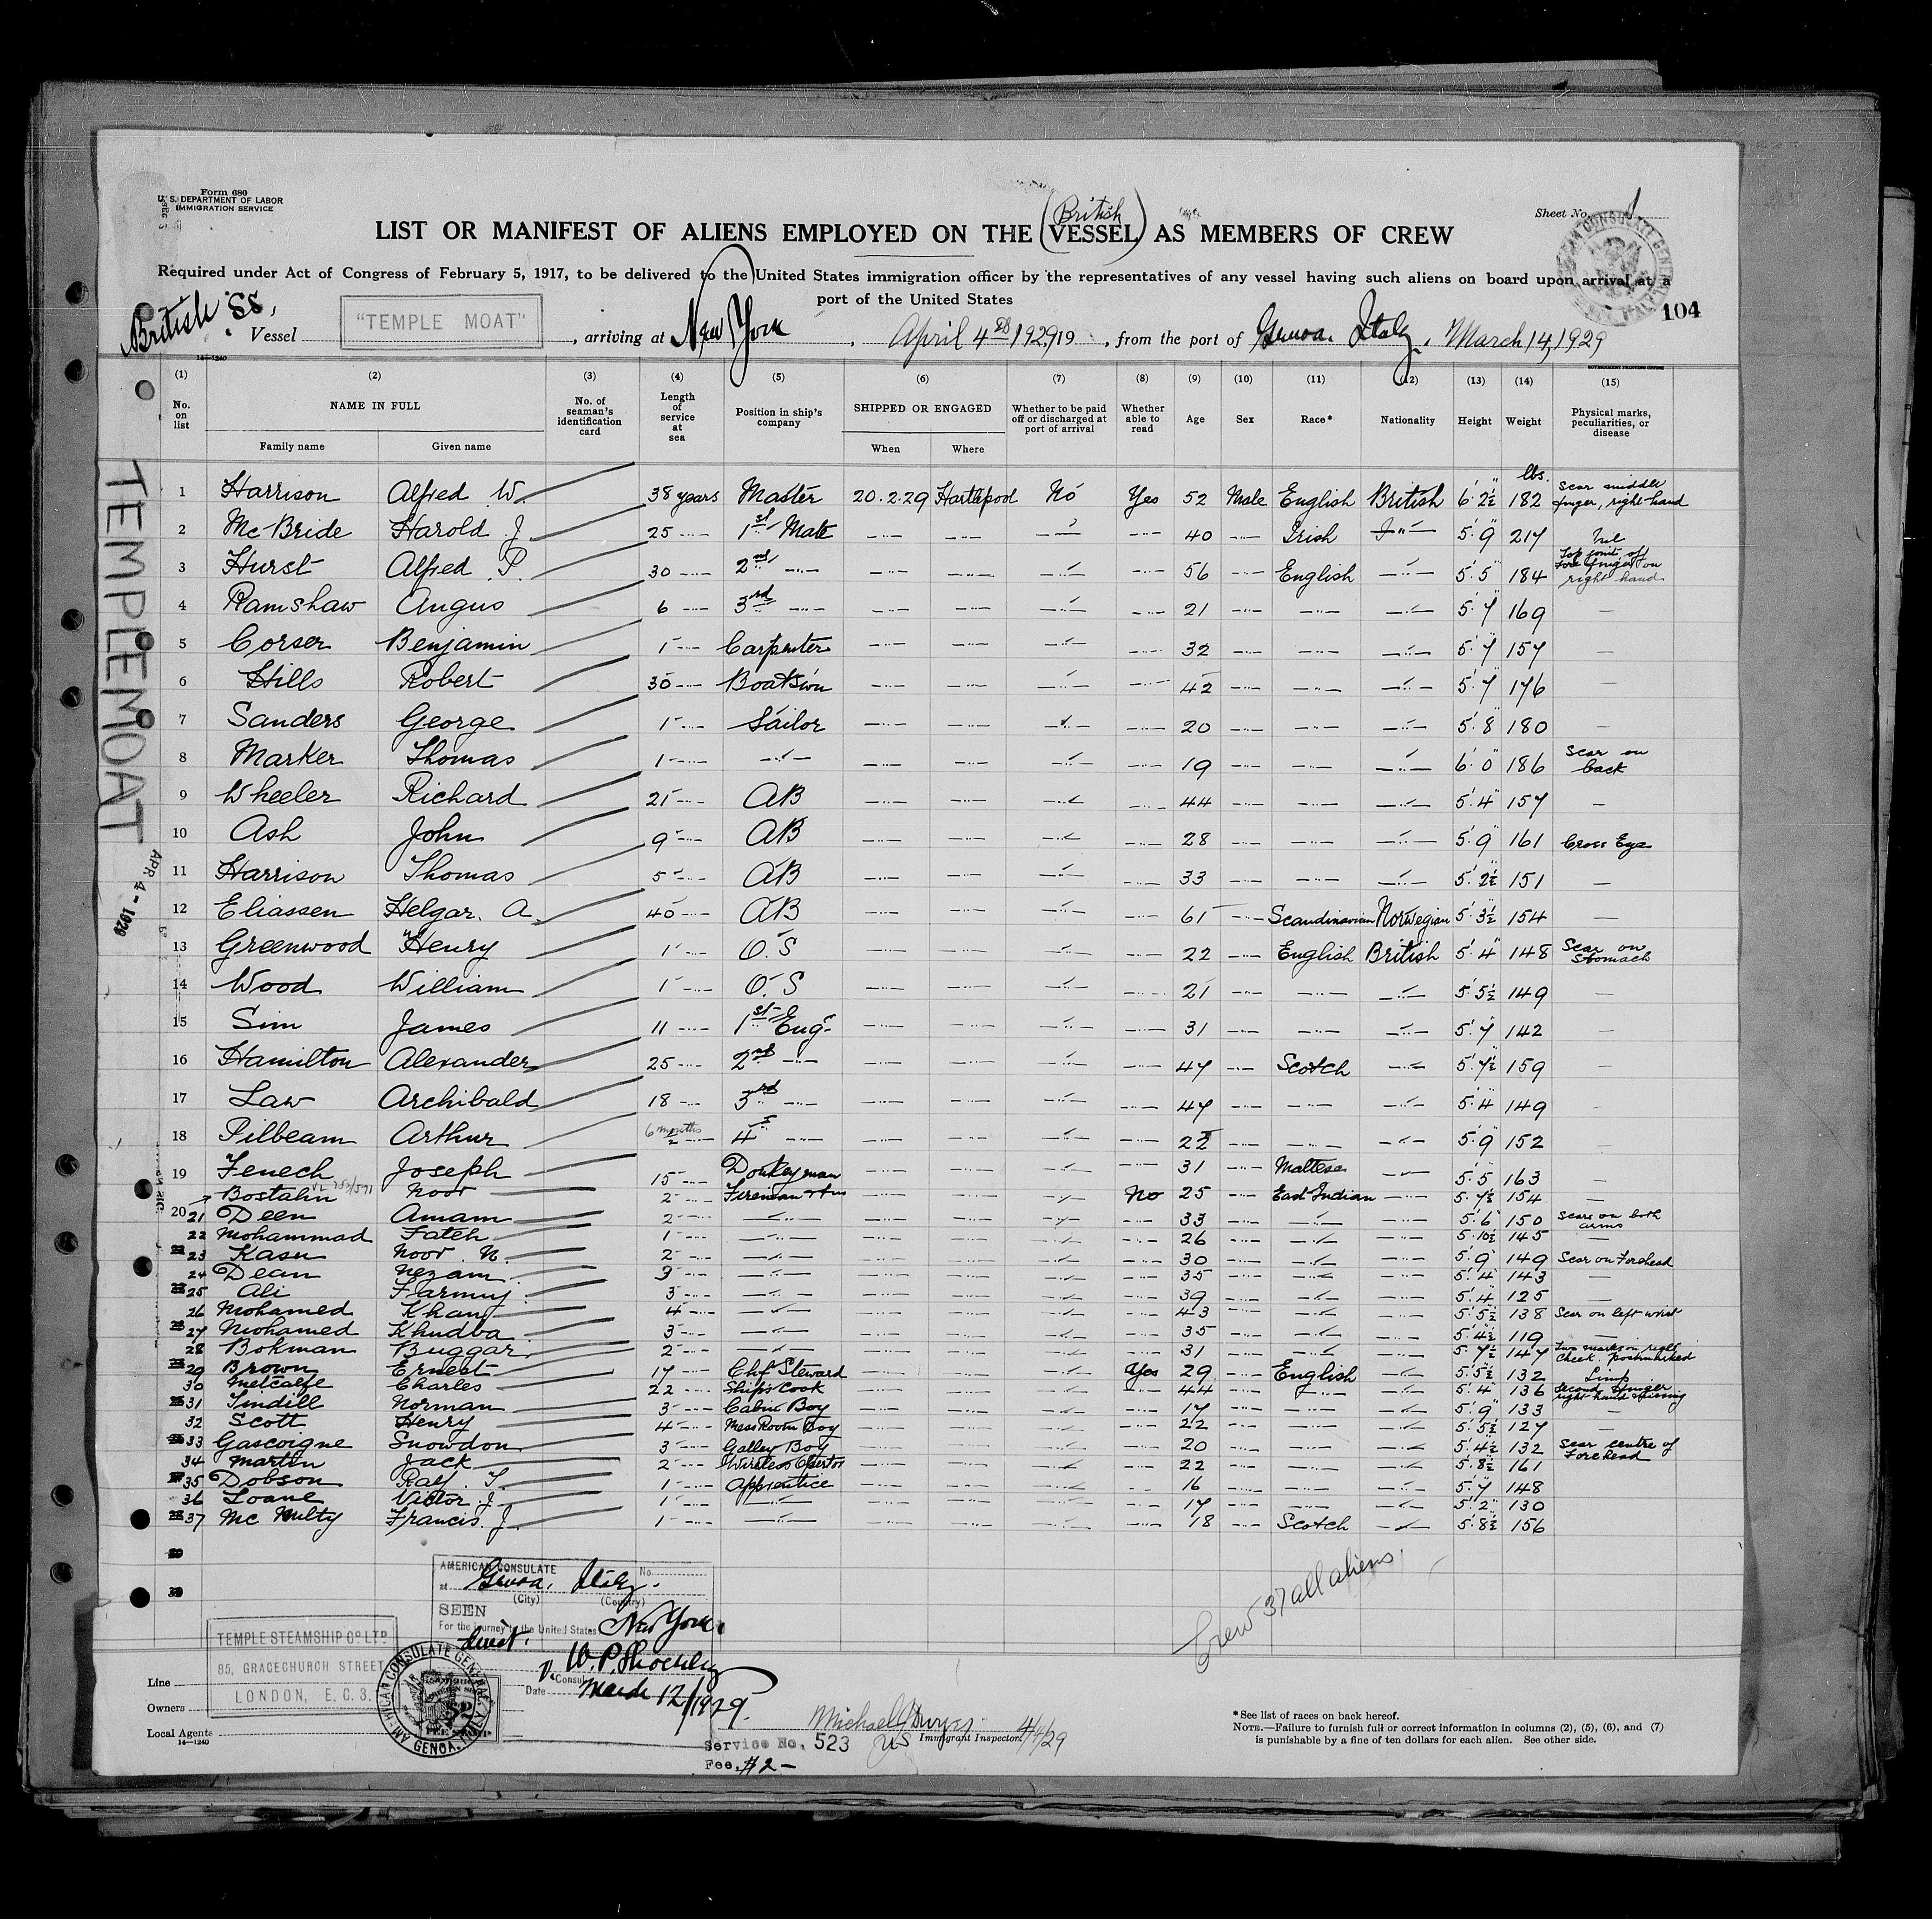 Form 680
U. S. DEPARTMENT OF LABOR
IMMIGRATION SERVICE
Sheet No. 1
(British)
LIST OR MANIFEST OF ALIENS EMPLOYED ON THE (VESSEL) AS MEMBERS OF CREW
Required under Act of Congress of February 5, 1917, to be delivered to the United States immigration officer by the representatives of any vessel having such aliens on board upon arrival at a
port of the United States
104
British SS. Vessel "TEMPLE MOAT", arriving at New York, April 4th 1929, 19, from the port of Genoa. Italy. March 14, 1929
14—1240
(1) (2) (3) (4) (5) (6) (7) (8) (9) (10) (11) (12) (13) (14) (15)
No. on list NAME IN FULL No. of seaman's identification card Length of service at sea Position in ship's company SHIPPED OR ENGAGED Whether to be paid off or discharged at port of arrival Whether able to read Age Sex Race* Nationality Height Weight Physical marks, peculiarities, or disease
Family name Given name When Where
TEMPLEMOAT
APR 4 - 1929
1 Harrison Alfred W. 38 years Master 20.2.29 Hartlepool No Yes 52 Male English British 6' 2½" 182 lbs. Scar middle finger, right hand
2 McBride Harold J. 25 —"— 1st Mate —"— —"— —"— —"— 40 —"— Irish —"— 5' 9" 217 Nil
3 Hurst Alfred P. 30 —"— 2nd —"— —"— —"— —"— —"— 56 —"— English —"— 5' 5" 184 Top joint of Fore finger on right hand
4 Ramshaw Angus 6 —"— 3rd —"— —"— —"— —"— —"— 21 —"— —"— —"— 5' 7" 169 —
5 Corser Benjamin 1 —"— Carpenter —"— —"— —"— —"— 32 —"— —"— —"— 5' 7" 157 —
6 Hills Robert 30 —"— Boatswn —"— —"— —"— —"— 42 —"— —"— —"— 5' 7" 176 —
7 Sanders George 1 —"— Sailor —"— —"— —"— —"— 20 —"— —"— —"— 5' 8" 180 —
8 Marker Thomas 1 —"— —"— —"— —"— —"— —"— 19 —"— —"— —"— 6' 0" 186 Scar on back
9 Wheeler Richard 21 —"— AB —"— —"— —"— —"— 44 —"— —"— —"— 5' 4" 157 —
10 Ash John 9 —"— AB —"— —"— —"— —"— 28 —"— —"— —"— 5' 9" 161 Cross Eye
11 Harrison Thomas 5 —"— AB —"— —"— —"— —"— 33 —"— —"— —"— 5' 2½" 151 —
12 Eliassen Helgar. A. 40 —"— AB —"— —"— —"— —"— 61 —"— Scandinavian Norwegian 5' 3½" 154 —
13 Greenwood Henry 1 —"— O.S —"— —"— —"— —"— 22 —"— English British 5' 4" 148 Scar on Stomach
14 Wood William 1 —"— O.S —"— —"— —"— —"— 21 —"— —"— —"— 5' 5½" 149 —
15 Sim James 11 —"— 1st Engr —"— —"— —"— —"— 31 —"— —"— —"— 5' 7" 142 —
16 Hamilton Alexander 25 —"— 2nd —"— —"— —"— —"— —"— 47 —"— Scotch —"— 5' 7½" 159 —
17 Law Archibald 18 —"— 3rd —"— —"— —"— —"— —"— 47 —"— —"— —"— 5' 4" 149 —
18 Pilbeam Arthur 6 months —"— 4 —"— —"— —"— —"— —"— 22 —"— —"— —"— 5' 9" 152 —
19 Fenech Joseph 15 —"— Donkeyman —"— —"— —"— —"— 31 —"— Maltese —"— 5' 5" 163 —
20 Bostahn Noor 2 —"— Fireman —"— —"— —"— No 25 —"— East Indian —"— 5' 7½" 154 —
21 Deen Amam 2 —"— —"— —"— —"— —"— —"— 33 —"— —"— —"— 5' 6" 150 Scars on both arms
22 Mohammad Fateh 1 —"— —"— —"— —"— —"— —"— 26 —"— —"— —"— 5' 10½" 145 —
23 Kasu Noor N. 2 —"— —"— —"— —"— —"— —"— 30 —"— —"— —"— 5' 9" 149 Scar on Forehead
24 Dean Nezam 3 —"— —"— —"— —"— —"— —"— 35 —"— —"— —"— 5' 4" 143 —
25 Ali Farmuj 3 —"— —"— —"— —"— —"— —"— 39 —"— —"— —"— 5' 4" 125 —
26 Mohamed Khan 4 —"— —"— —"— —"— —"— —"— 43 —"— —"— —"— 5' 5½" 138 Scar on left wrist
27 Mohamed Khudba 3 —"— —"— —"— —"— —"— —"— 35 —"— —"— —"— 5' 4½" 119 —
28 Bokman Buggar 2 —"— —"— —"— —"— —"— —"— 31 —"— —"— —"— 5' 7½" 147 Two marks on right Cheek. Pockmarked
29 Brown Ernest 17 —"— Chf Steward —"— —"— —"— Yes 29 —"— English —"— 5' 5½" 132 Limp
30 Metcalfe Charles 22 —"— Ship's Cook —"— —"— —"— —"— 44 —"— —"— —"— 5' 4" 136 Second finger right hand missing
31 Tindill Norman 3 —"— Cabin Boy —"— —"— —"— —"— 17 —"— —"— —"— 5' 9" 133 —
32 Scott Henry 4 —"— Mess Room Boy —"— —"— —"— —"— 22 —"— —"— —"— 5' 5½" 127 —
33 Gascoigne Snowdon 3 —"— Galley Boy —"— —"— —"— —"— 20 —"— —"— —"— 5' 4½" 132 Scar centre of Forehead
34 Martin Jack 2 —"— Wireless Opertor —"— —"— —"— —"— 22 —"— —"— —"— 5' 8½" 161
35 Dobson Ralf. T. 1 —"— Apprentice —"— —"— —"— —"— 16 —"— —"— —"— 5' 7" 148
36 Loane Victor. J. 1 —"— —"— —"— —"— —"— —"— 17 —"— —"— —"— 5' 2" 130
37 Mc Nulty Francis. J. 1 —"— —"— —"— —"— —"— —"— 18 —"— Scotch —"— 5' 8½" 156
29
30
Crew 37 all aliens.
AMERICAN CONSULATE No.
at Genoa, Italy.
(City) (Country)
SEEN
For the journey to the United States New York
direct.
V. W.P. Shockley
Consul
Date March 12/1929.
TEMPLE STEAMSHIP CO. LTD
85, GRACECHURCH STREET
LONDON, E.C.3.
AMERICAN CONSULATE GENERAL GENOA, ITALY
Line
Owners
Local Agents
14—1240
Service No. 523
Fee. $2 —
Immigrant Inspector. 4/4/29
*See list of races on back hereof.
NOTE.—Failure to furnish full or correct information in columns (2), (5), (6), and (7)
is punishable by a fine of ten dollars for each alien. See other side.